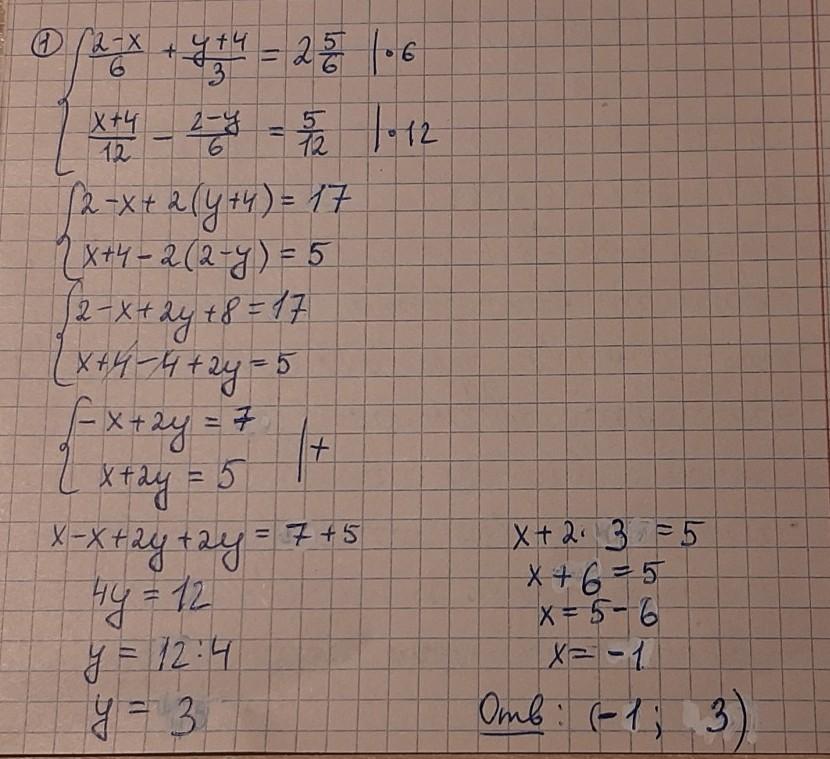 ① { (2-x)/6 + (y+4)/3 = 2 5/6 | · 6
(x+4)/12 - (2-y)/6 = 5/12 | · 12
{ 2-x+2(y+4) = 17
x+4-2(2-y) = 5
{ 2-x+2y+8 = 17
x+4-4+2y = 5
{ -x+2y = 7
x+2y = 5 | +
x-x+2y+2y = 7+5
4y = 12
y = 12:4
y = 3
x+2· 3 = 5
x+6 = 5
x = 5-6
x = -1
Отв: (-1; 3)